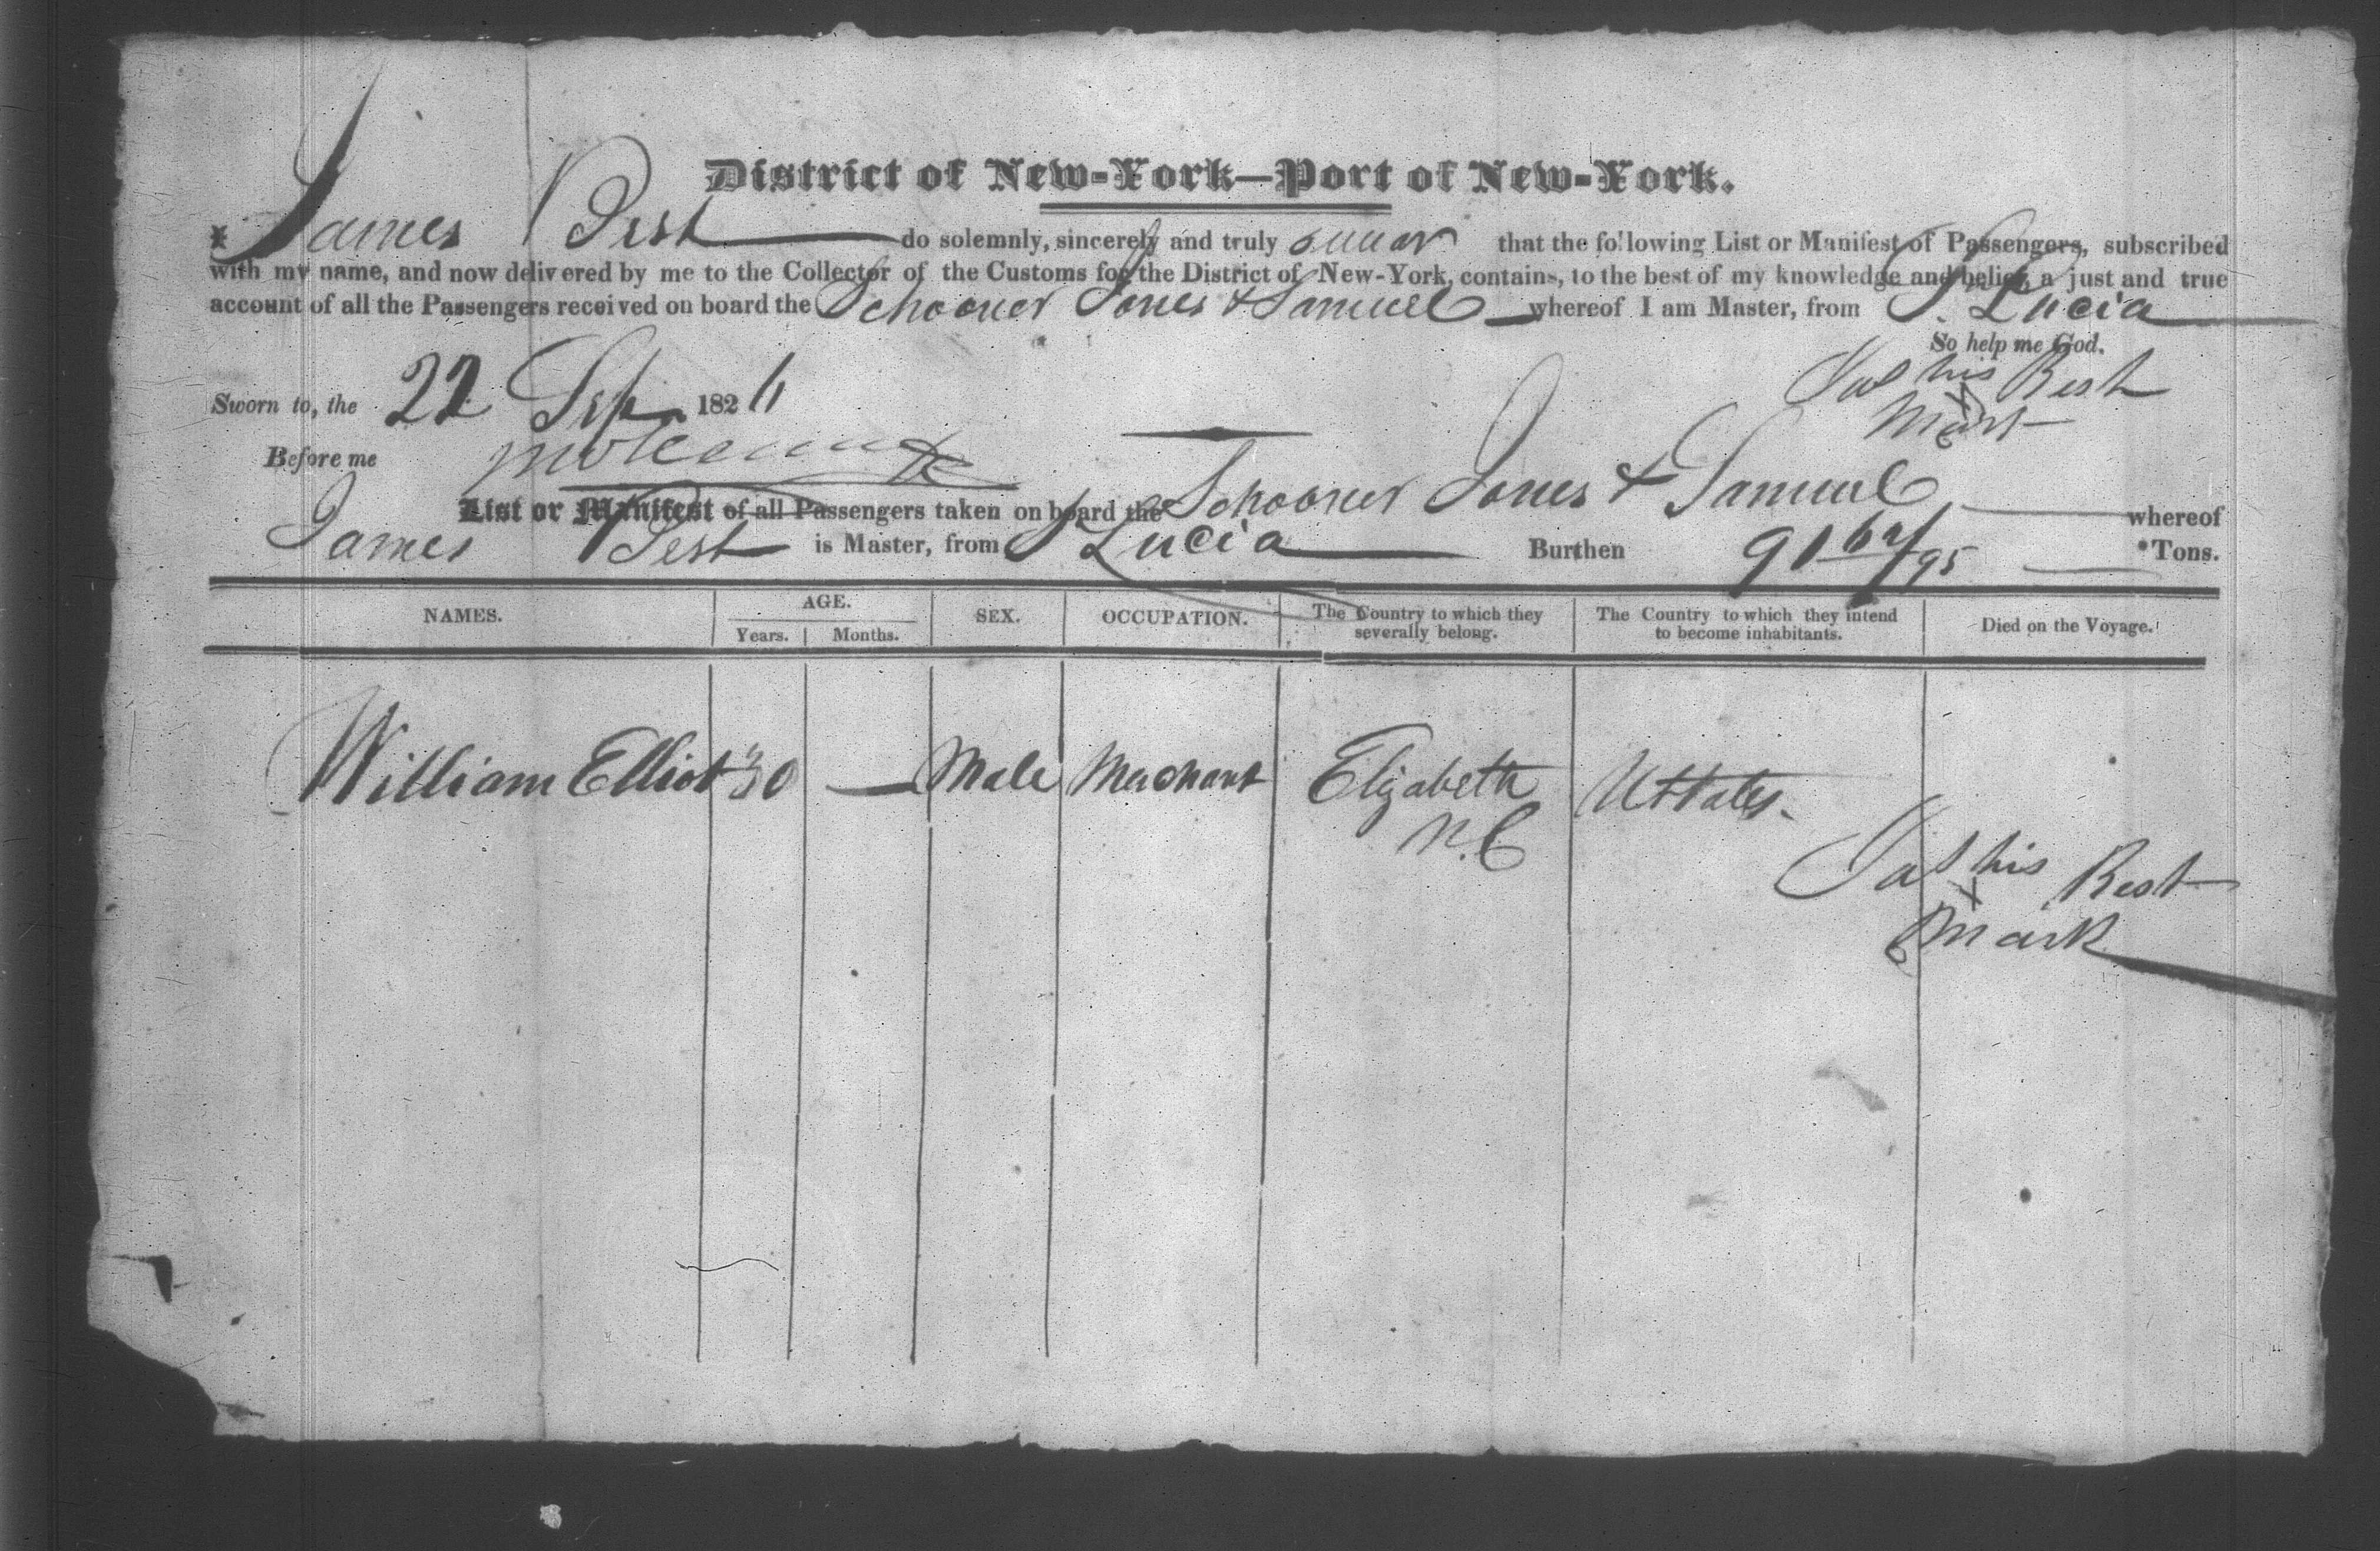 District of New-York—Port of New-York.
I James Best do solemnly, sincerely and truly swear that the following List or Manifest of Passengers, subscribed
with my name, and now delivered by me to the Collector of the Customs for the District of New-York, contains, to the best of my knowledge and belief, a just and true
account of all the Passengers received on board the Schooner Jones & Samuel whereof I am Master, from St Lucia
So help me God.
Jas his Best
x
Mark
Sworn to, the 22 Sep 1826
Before me
List or Manifest of all Passengers taken on board the Schooner Jones & Samuel whereof
James Best is Master, from St Lucia Burthen 91 62/95 Tons.
NAMES. AGE. SEX. OCCUPATION. The Country to which they severally belong. The Country to which they intend to become inhabitants. Died on the Voyage.
Years. Months.
William Elliot 30 — Male Merchant Elizabeth UStates.
N.C
Jas his Best
x
Mark